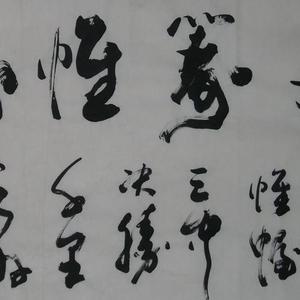 筹帷
帷幄
之中
决勝
千里